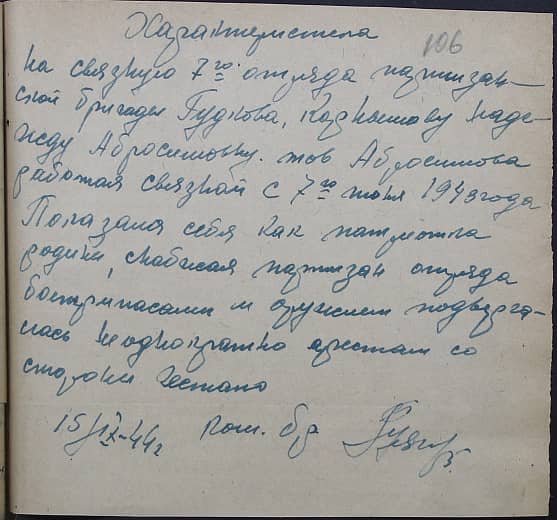 Характеристика
106
на связную 7го отряда партизан-
ской бригады Гудкова, Надеж-
жду Абросимовну. тов Абросимова
работая связной с 7го июня 1943 года
Показала себя как патриотка
родины, снабжая партизан отряда
боеприпасами и оружием подверга-
лась неоднократно арестам со
стороны Гестапо
15/IX-44г Ком. бр